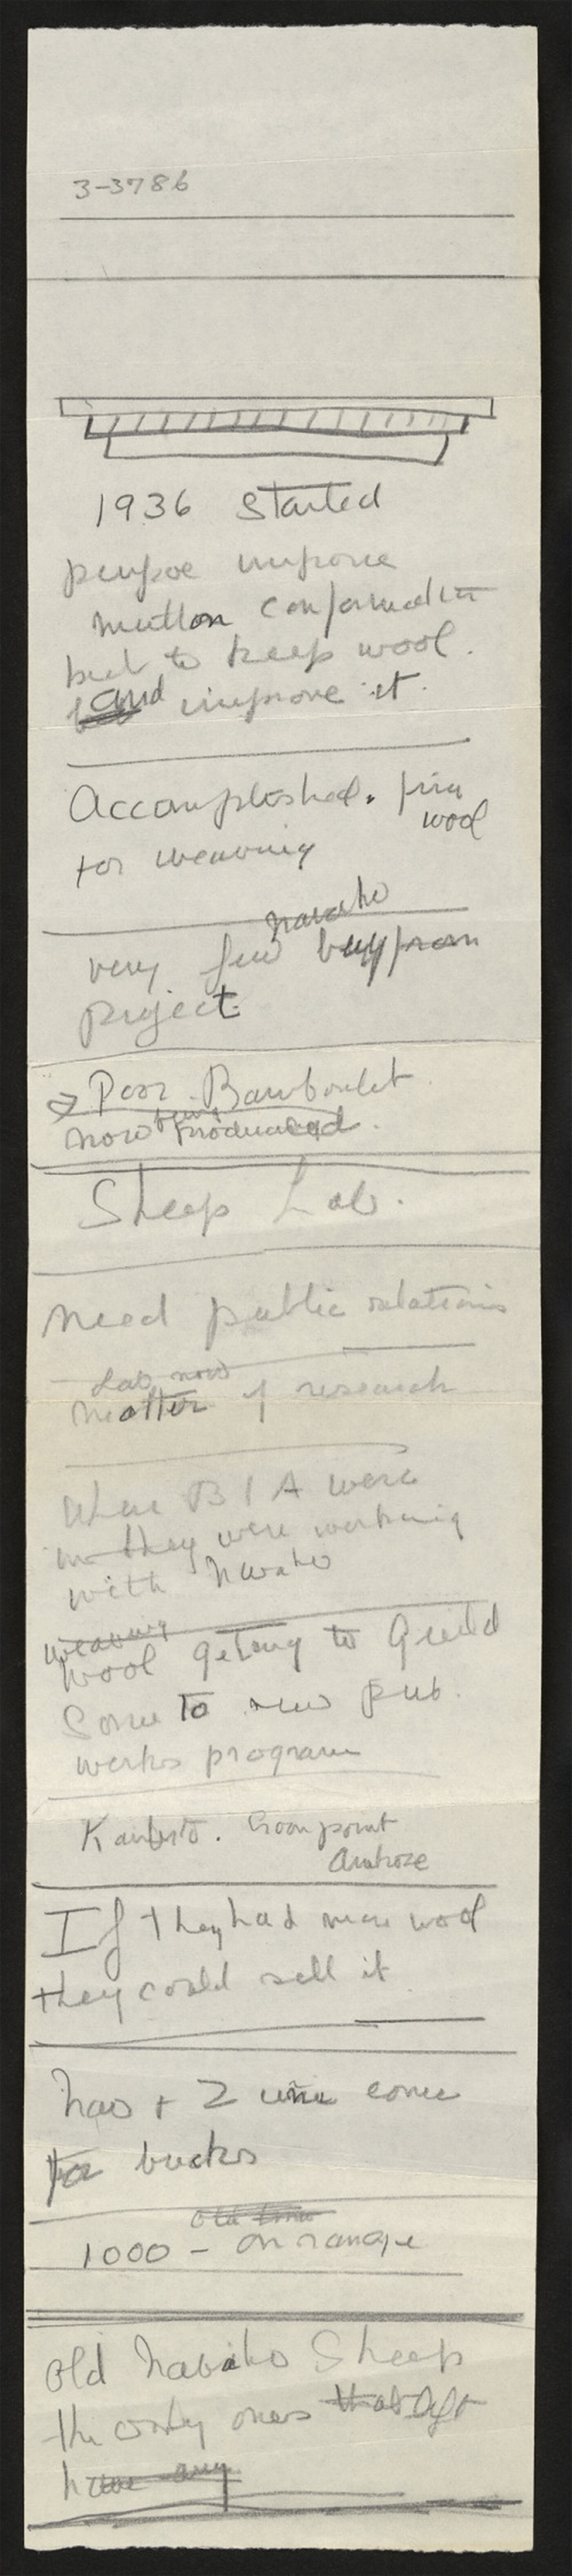 3-3786
1936 started
purpose improve
mutton conformation
but to keep wool.
and improve it.
Accomplished. fine
wool
for weaving
navaho
very few buy from
project
Poor Rambouillet
now being produced.
Sheep Lab.
Need public relations
Lab now
matter of research
When B I A were
in they were working
with Navaho
weaving
wool getting to Guild
Some to new pub.
works program
Kanbito. Crownpoint
Ambrose
If they had more wool
they could sell it
has + 2 come
for bucks
old time
1000 – on range
old Navaho Sheep
the only ones that left
have any